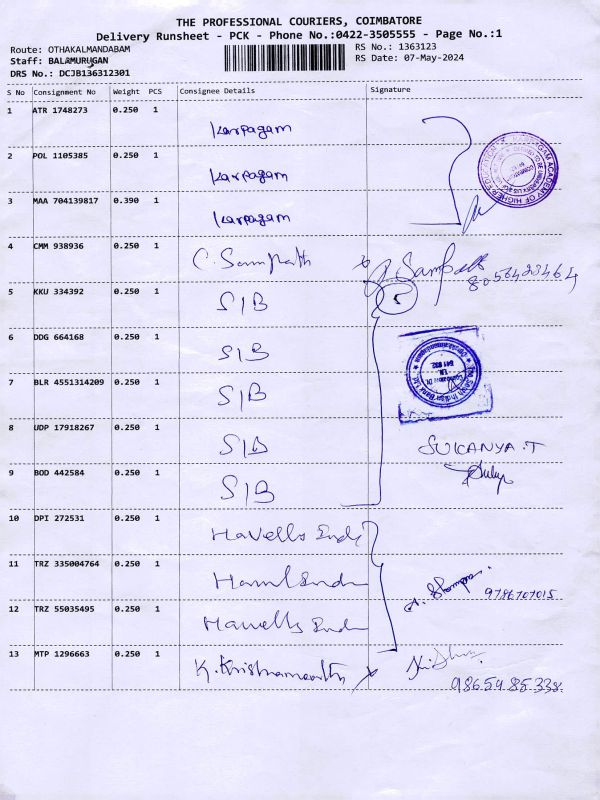 THE PROFESSIONAL COURIERS, COIMBATORE
Delivery Runsheet - PCK - Phone No.:0422-3505555 - Page No.:1
Route: OTHAKALMANDABAM RS No.: 1363123
Staff: BALAMURUGAN RS Date: 07-May-2024
DRS No.: DCJB136312301
S No Consignment No Weight PCS Consignee Details Signature
1 ATR 1748273 0.250 1 Karpagam
2 POL 1105385 0.250 1 Karpagam
3 MAA 704139817 0.390 1 Karpagam
4 CMM 938936 0.250 1 C. Sampath Sampath
8056423464
5 KKU 334392 0.250 1 SIB 5
6 DDG 664168 0.250 1 SIB
7 BLR 4551314209 0.250 1 SIB
8 UDP 17918267 0.250 1 SIB SUKANYA.T
9 BOD 442584 0.250 1 SIB
10 DPI 272531 0.250 1 Havells
11 TRZ 335004764 0.250 1 9786707015
12 TRZ 55035495 0.250 1 Havells
13 MTP 1296663 0.250 1 K. Krishnamoorthy
9865985338